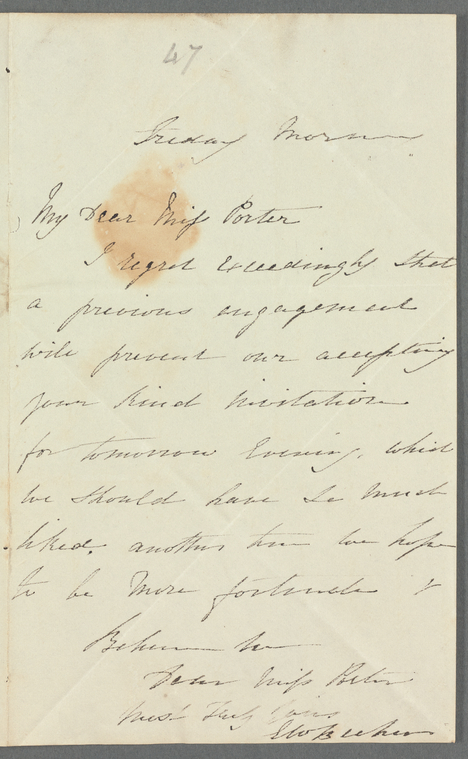 47
Friday Morn
My Dear Miss Porter
I regret exceedingly that
a previous engagement
will prevent our accepting
your kind invitation
for tomorrow Evening, which
we should have so much
liked. another time we hope
to be more fortunate &
Believe me
Dear Miss Porter
Most Truly Yours